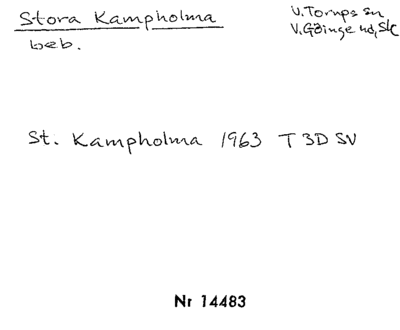 Stora Kampholma
V. Torups sn
V. Göinge hd, Sk
beb.
St. Kampholma 1963 T 3D SV
Nr 14483